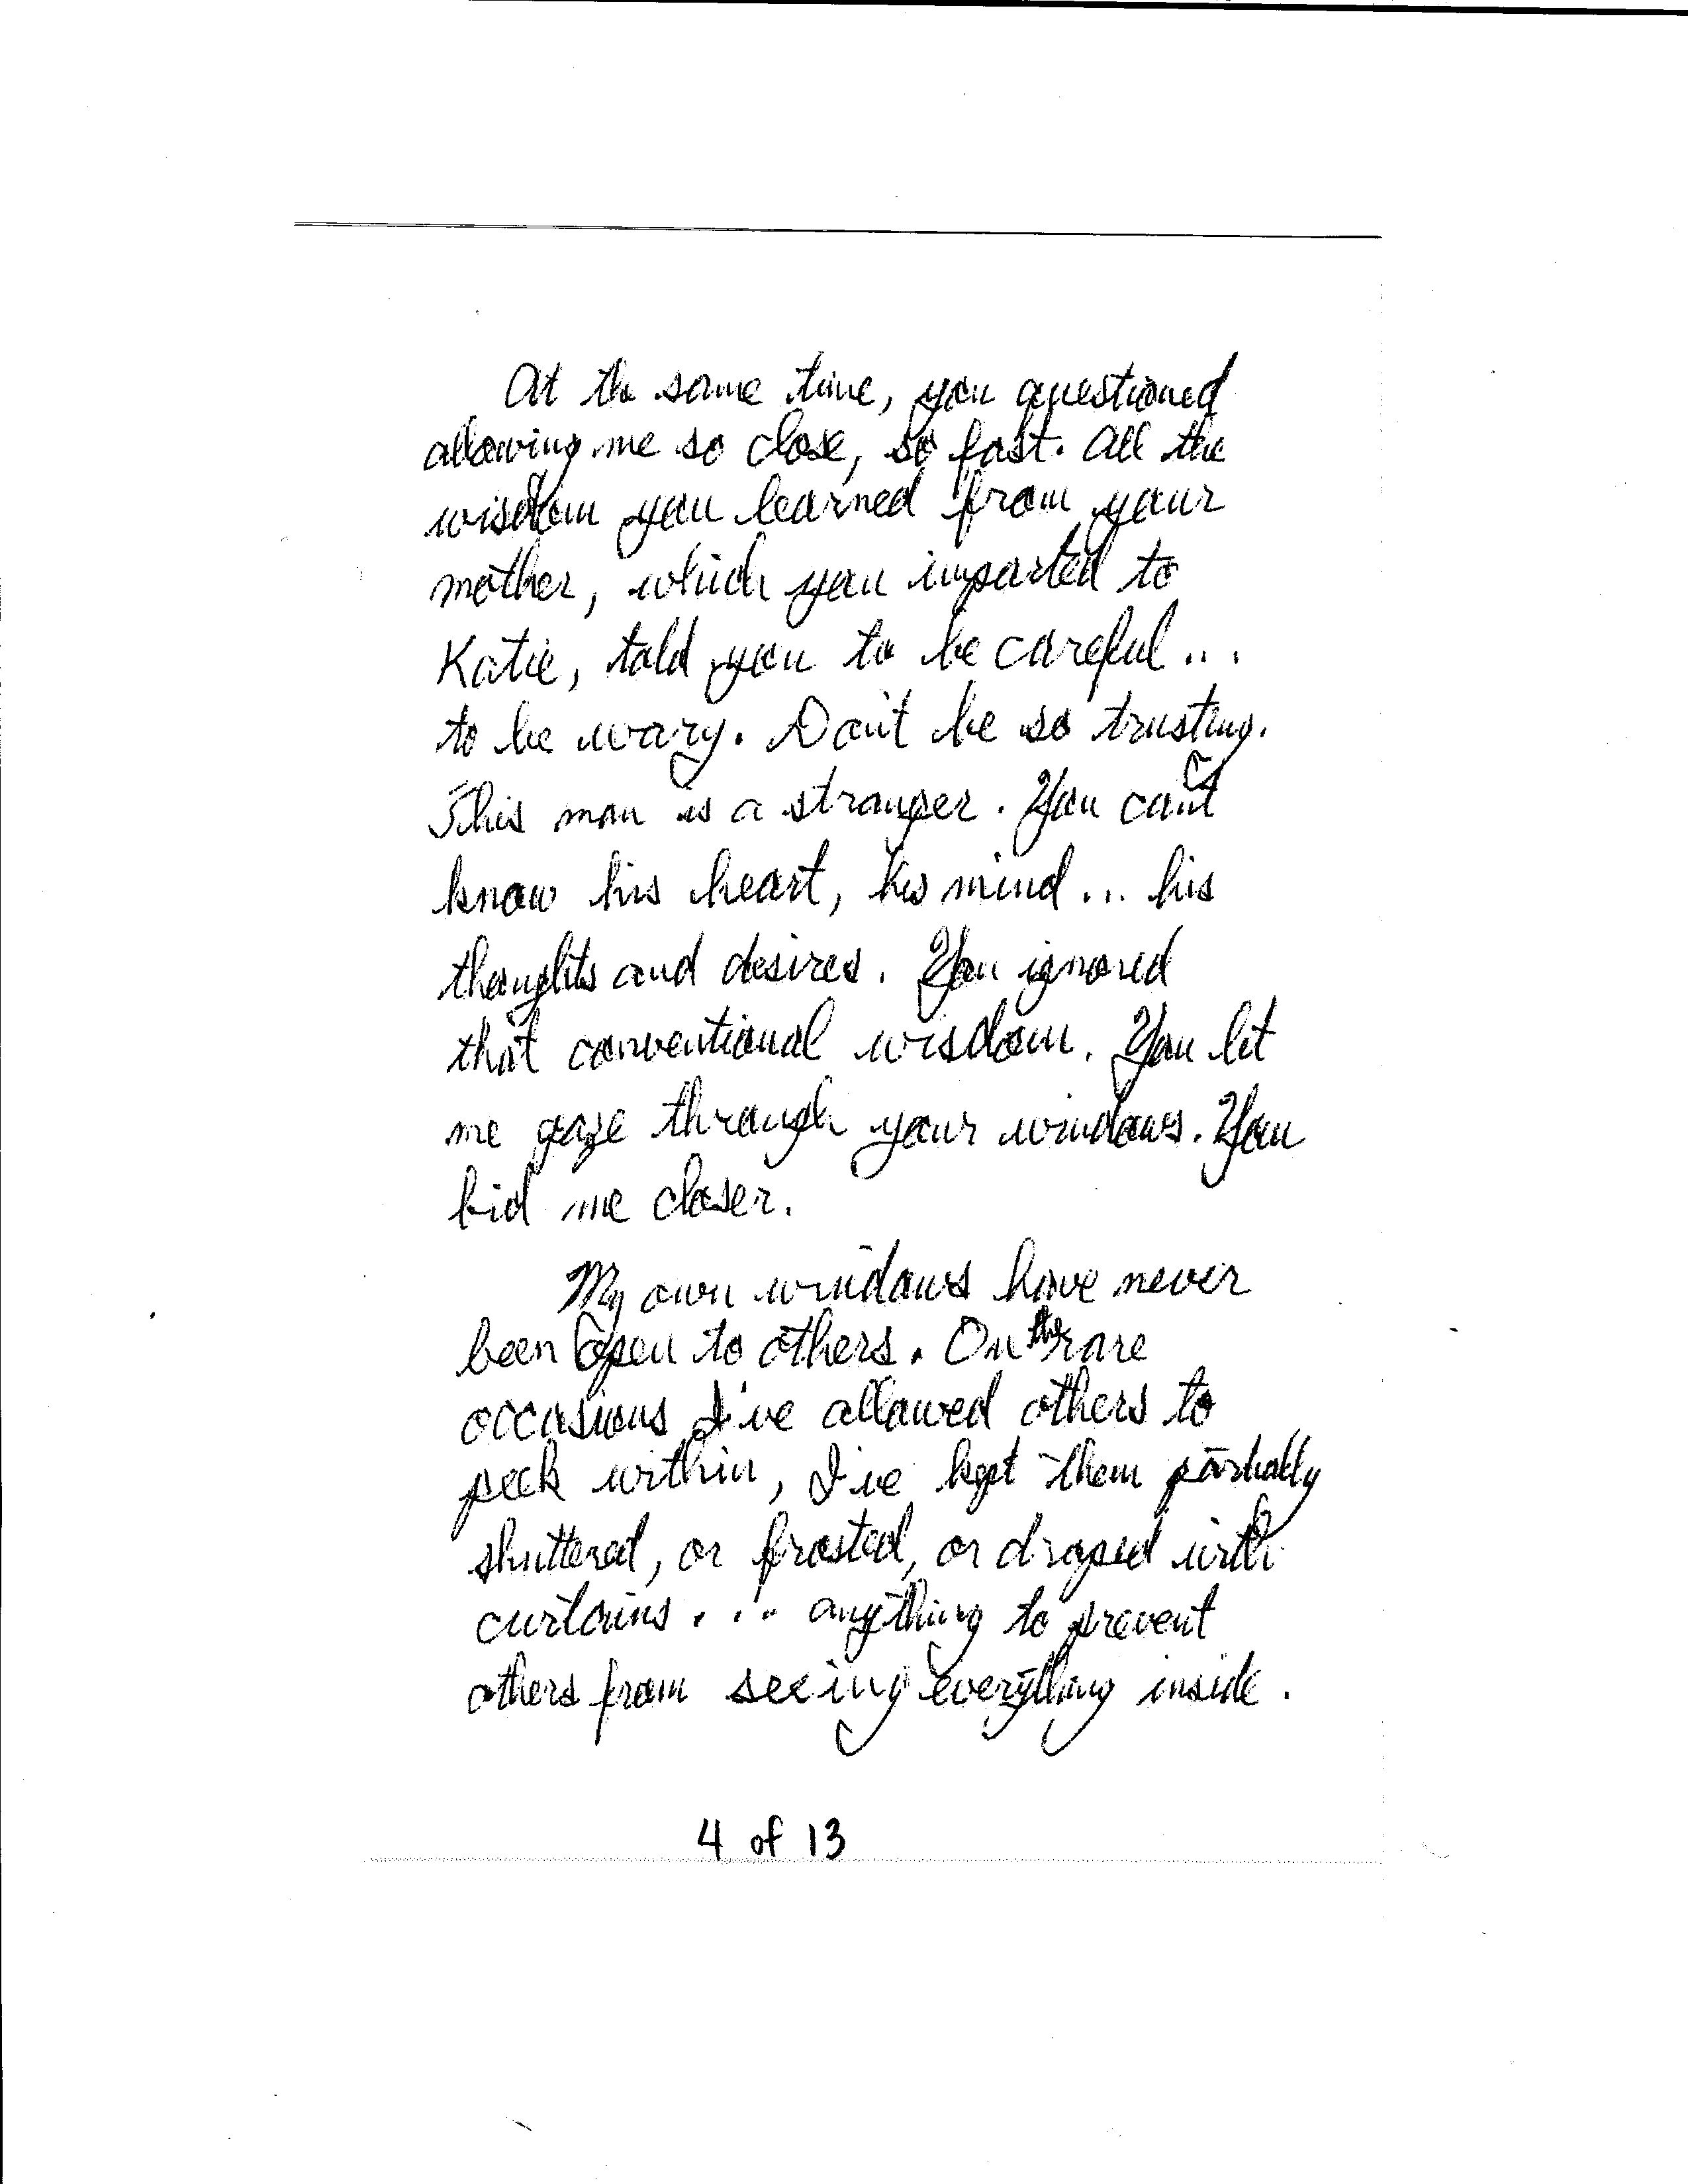 At the same time, you questioned
allowing me so close, so fast. All the
wisdom you learned from your
mother, which you imparted to
Katie, told you to be careful...
to be wary. Don't be so trusting.
This man is a stranger. You can't
know his heart, his mind... his
thoughts and desires. You ignored
that conventional wisdom. You let
me gaze through your windows. You
bid me closer.
My own windows have never
been open to others. On the rare
occasions I've allowed others to
peek within, I've kept them partially
shuttered, or frosted, or draped with
curtains... anything to prevent
others from seeing everything inside.
4 of 13